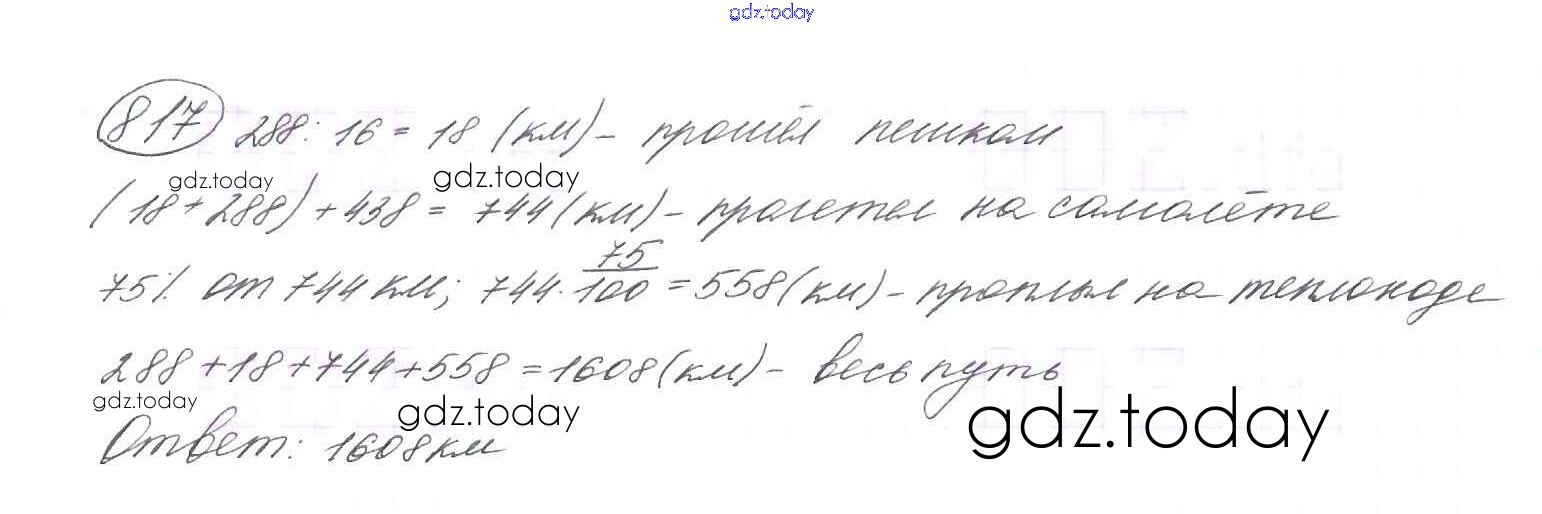 gdz.today
817 288 : 16 = 18 (км) - прошёл пешком
gdz.today gdz.today
(18 + 288) + 438 = 744 (км) - пролетел на самолёте
75% от 744 км; 744 · 75/100 = 558 (км) - проплыл на теплоходе
288 + 18 + 744 + 558 = 1608 (км) - весь путь
gdz.today gdz.today gdz.today
Ответ: 1608 км